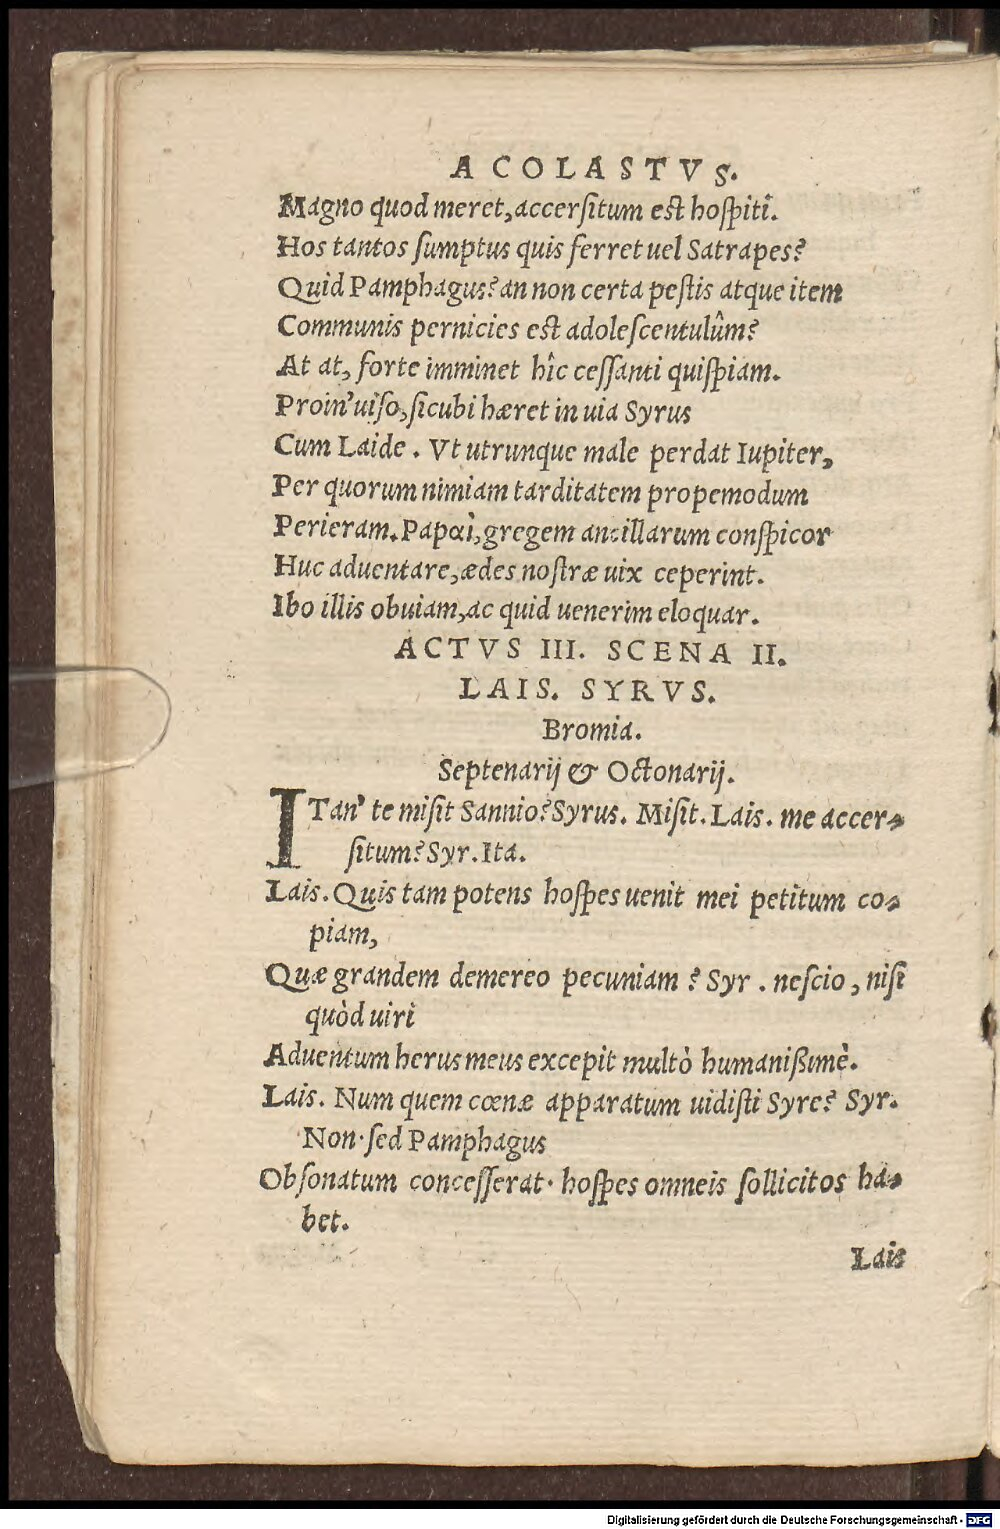 ACOLASTVS.
Magno quod meret, accerſitum est hoſpitî.
Hos tantos ſumptus quis ferret uel Satrapes?
Quid Pamphagus? an non certa peſtis atque item
Communis pernicies est adoleſcentulûm?
At at, forte imminet hîc ceſſanti quiſpiam.
Proin' uiſo, ſicubi hæret in uia Syrus
Cum Laide. Vt utrunque male perdat Iupiter,
Per quorum nimiam tarditatem propemodum
Perieram. Papαì, gregem ancillarum conſpicor
Huc aduentare, ædes noſtræ uix ceperint.
Ibo illis obuiam, ac quid uenerim eloquar.
ACTVS III. SCENA II.
LAIS. SYRVS.
Bromia.
Septenarij & Octonarij.
ITan' te miſit Sannio? Syrus. Miſit. Lais. me accer-
ſitum? Syr. Ita.
Lais. Quis tam potens hoſpes uenit mei petitum co-
piam,
Quæ grandem demereo pecuniam? Syr. neſcio, niſi
quòd uiri
Aduentum herus meus excepit multò humanißimè.
Lais. Num quem cœnæ apparatum uidiſti Syre? Syr.
Non. ſed Pamphagus
Obſonatum conceſſerat. hoſpes omneis ſollicitos ha-
bet.
Lais
Digitalisierung gefördert durch die Deutsche Forschungsgemeinschaft - DFG